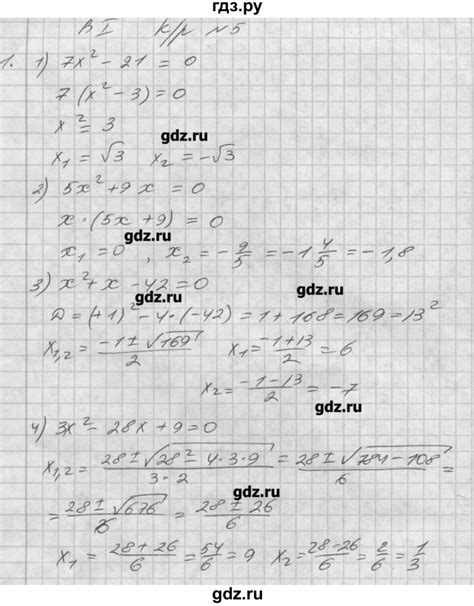 гдз.ру
В I К/р №5
1. 1) 7x² - 21 = 0
7 (x² - 3) = 0
x² = 3
gdz.ru
x₁ = √3 x₂ = -√3
gdz.ru
2) 5x² + 9x = 0
x · (5x + 9) = 0
gdz.ru
x₁ = 0 , x₂ = -9/5 = -1 4/5 = -1,8
3) x² + x - 42 = 0
gdz.ru
D = (+1)² - 4 · (-42) = 1 + 168 = 169 = 13²
x₁,₂ = (-1 ± √169)/2 x₁ = (-1+13)/2 = 6
gdz.ru
x₂ = (-1-13)/2 = -7
gdz.ru
4) 3x² - 28x + 9 = 0
gdz.ru
x₁,₂ = (28 ± √(28² - 4·3·9))/(3·2) = (28 ± √(784 - 108))/6 =
gdz.ru
= (28 ± √676)/6 = (28 ± 26)/6
gdz.ru
x₁ = (28+26)/6 = 54/6 = 9 x₂ = (28-26)/6 = 2/6 = 1/3
gdz.ru